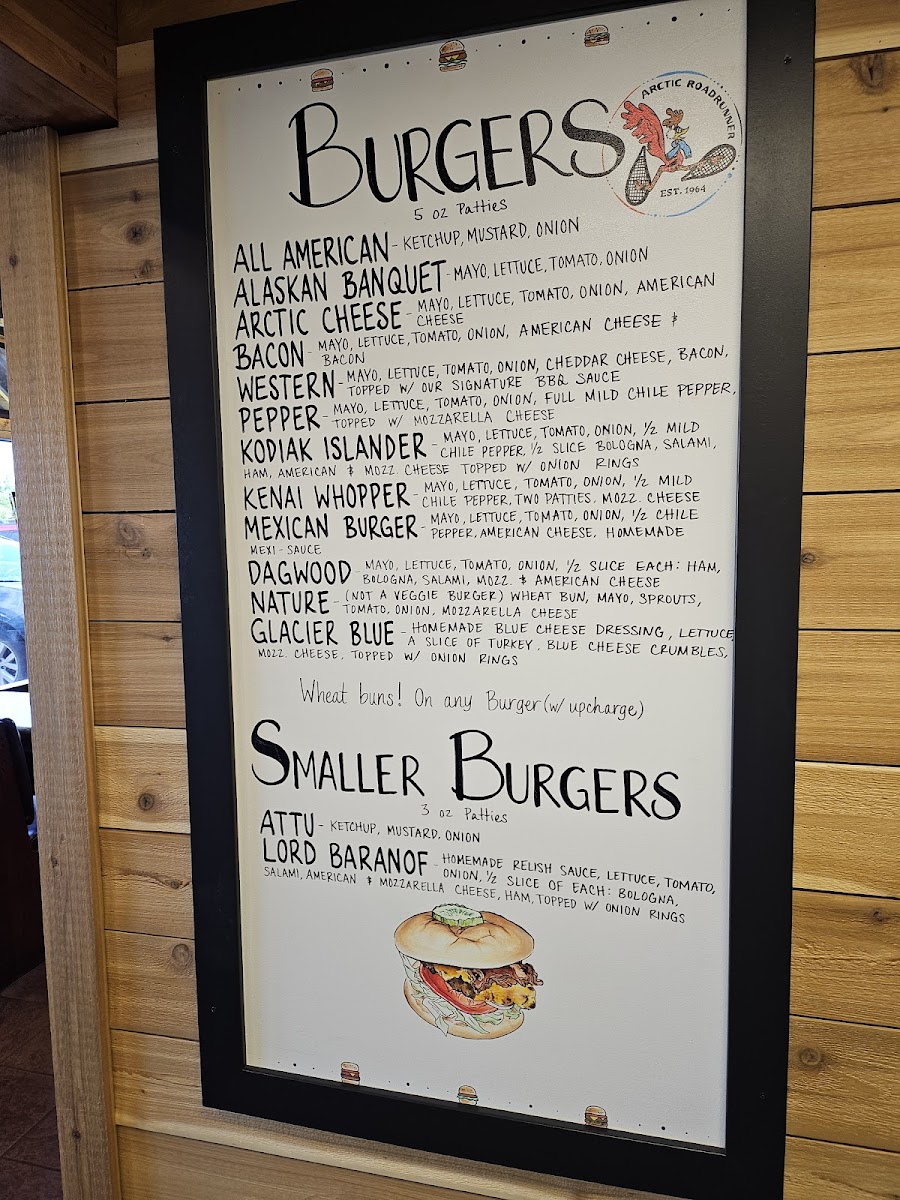 ARCTIC ROADRUNNER
EST. 1964
BURGERS
5 oz Patties
ALL AMERICAN - KETCHUP, MUSTARD, ONION
ALASKAN BANQUET - MAYO, LETTUCE, TOMATO, ONION
ARCTIC CHEESE - MAYO, LETTUCE, TOMATO, ONION, AMERICAN
CHEESE
BACON - MAYO, LETTUCE, TOMATO, ONION, AMERICAN CHEESE &
BACON
WESTERN - MAYO, LETTUCE, TOMATO, ONION, CHEDDAR CHEESE, BACON,
TOPPED W/ OUR SIGNATURE BBQ SAUCE
PEPPER - MAYO, LETTUCE, TOMATO, ONION, FULL MILD CHILE PEPPER,
TOPPED W/ MOZZARELLA CHEESE
KODIAK ISLANDER - MAYO, LETTUCE, TOMATO, ONION, 1/2 MILD
CHILE PEPPER, 1/2 SLICE BOLOGNA, SALAMI,
HAM, AMERICAN & MOZZ. CHEESE TOPPED W/ ONION RINGS
KENAI WHOPPER - MAYO, LETTUCE, TOMATO, ONION, 1/2 MILD
CHILE PEPPER, TWO PATTIES. MOZZ. CHEESE
MEXICAN BURGER - MAYO, LETTUCE, TOMATO, ONION, 1/2 CHILE
PEPPER, AMERICAN CHEESE. HOMEMADE
MEXI-SAUCE
DAGWOOD - MAYO, LETTUCE, TOMATO, ONION, 1/2 SLICE EACH: HAM,
BOLOGNA, SALAMI, MOZZ. & AMERICAN CHEESE
NATURE - (NOT A VEGGIE BURGER) WHEAT BUN, MAYO, SPROUTS,
TOMATO, ONION, MOZZARELLA CHEESE
GLACIER BLUE - HOMEMADE BLUE CHEESE DRESSING, LETTUCE,
A SLICE OF TURKEY. BLUE CHEESE CRUMBLES,
MOZZ. CHEESE, TOPPED W/ ONION RINGS
Wheat buns! On any Burger (w/ upcharge)
SMALLER BURGERS
3 oz Patties
ATTU - KETCHUP, MUSTARD, ONION
LORD BARANOF - HOMEMADE RELISH SAUCE, LETTUCE, TOMATO,
ONION, 1/2 SLICE OF EACH: BOLOGNA,
SALAMI, AMERICAN & MOZZARELLA CHEESE, HAM, TOPPED W/ ONION RINGS